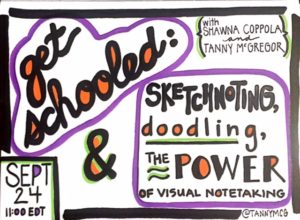 get
schooled:
with
SHAWNA COPPOLA
and
TANNY McGREGOR
&
SKETCHNOTING,
doodling,
THE POWER
OF VISUAL NOTETAKING
SEPT
24
11:00 EDT
@TANNYMCG